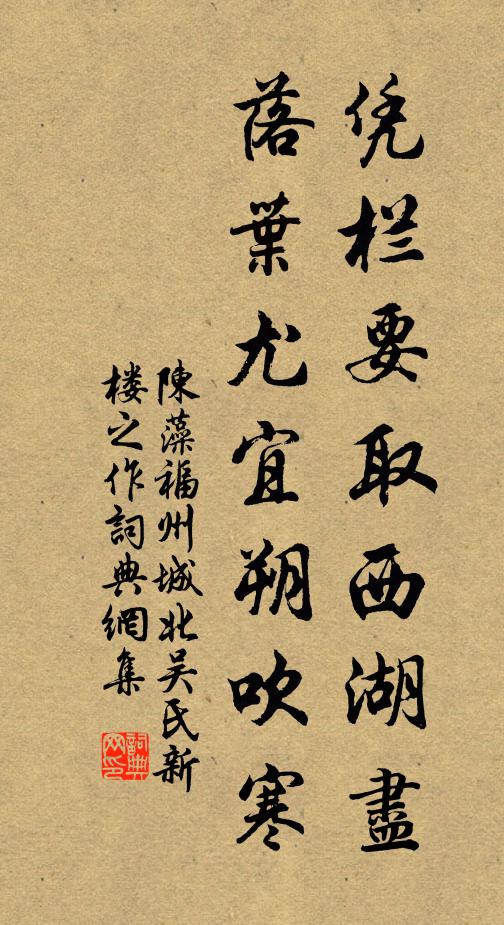 凭栏要取西湖盡
落葉尤宜朔吹寒
陳藻福州城北吴氏新
楼之作詞典網集
詞典网印